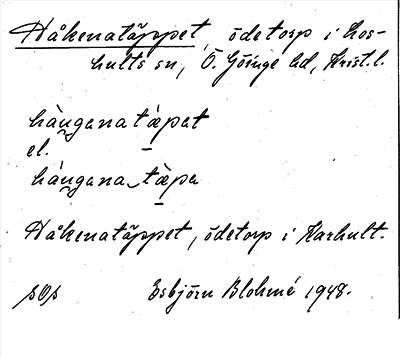 Håkenatäppet, ödetorp i Los-
hults sn, Ö. Göinge hd, Krist. l.
hàu̯gena tæ̀pet
el.
hàu̯gena tæ̀pa
Håkenatäppet, ödetorp i Harhult.
sOs Esbjörn Blohmé 1948.